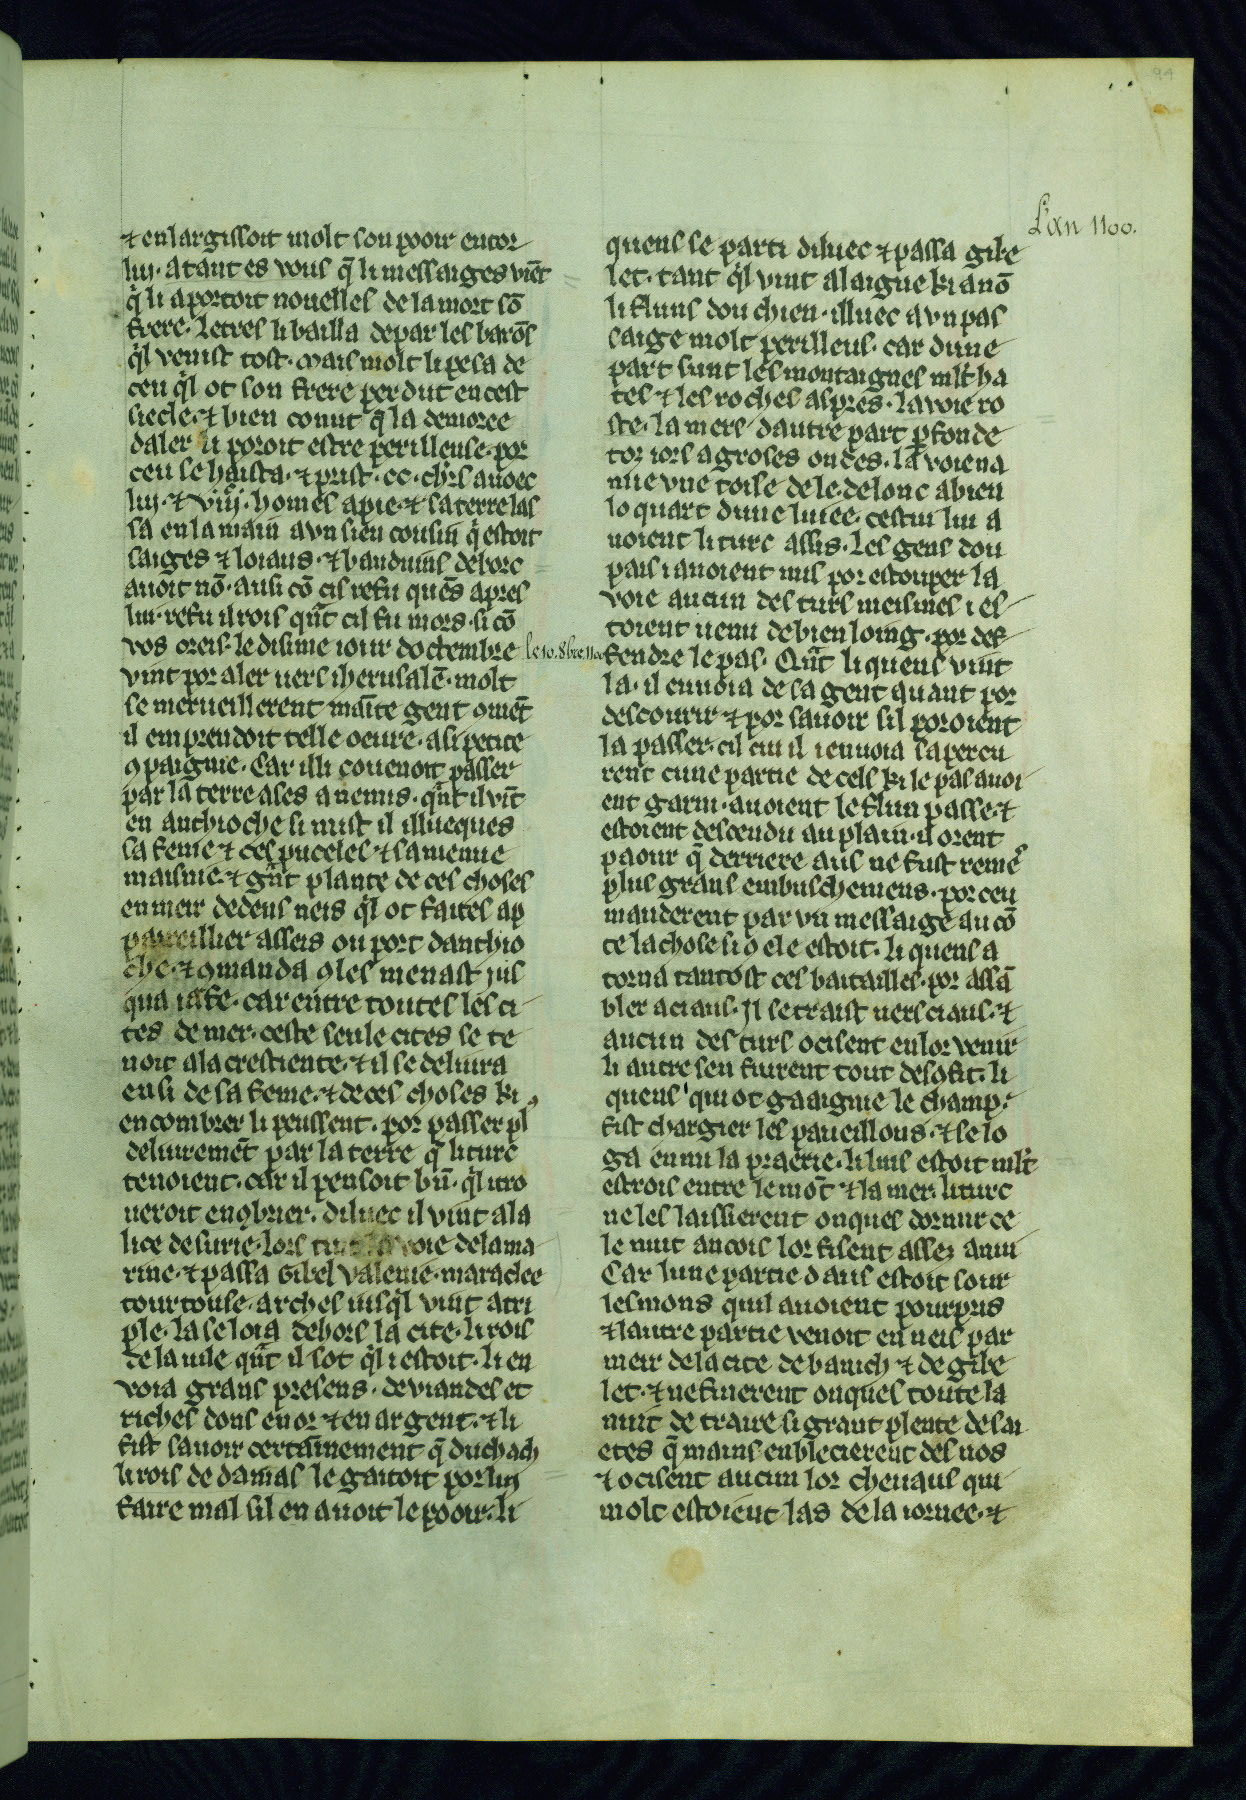 L'an 1100.
⁊ enlargissoit molt son pooir entor
lui. atant es vous q̄ li messaiges viēt
q̇ li aportoit nouelles de la mort sō
frere. Letres li bailla depar les barōs
q̇l venist tost. Mais molt li pesa de
ceu q̇l ot son frere perdut en cest
siecle. ⁊ bien conut q̄ la demoree
daler li poroit estre perilleuse. por
ceu se haista. ⁊ prist .cc. chrs auoec
lui. ⁊ viij. homes a pie. ⁊ sa terre las
sa en la main a vn sien cousin q̇ estoit
saiges ⁊ loiaus. ⁊ bauduins de borc
auoit nō. ausi cō cis refu quēs apres
lui. refu il rois qūt cil fu mors. si cō
vos oreis. le disime iour doctembre
le 10. 8bre. 1100
vint por aler uers iherusalē. molt
se merueillerent mainte gent ꝯmēt
il emprendoit telle oeure. a si petite
ꝯpaignie. Car illi couenoit passer
par la terre a ses anemis. qūt il vīt
en anthioche si mist il illueques
sa feme ⁊ ces puceles ⁊ sa menue
maisnie. ⁊ gn̄t plante de ces choses
en meir dedens neis q̇l ot faites ap
pareillier asseis ou port danthio
che. ⁊ ꝯmanda ꝯ les menast jus
qua iaffe. car entre toutes les ci
tes de mer. ceste seule cites se te
noit a la crestiente. ⁊ il se deliura
ensi de sa feme. ⁊ de ces choses ki
encombrer li peussent. por passer pl
deliuremēt par la terre q̄ li turc
tenoient. car il pensoit bn̄. q̇l i tro
ueroit enꝯbrier. diluec il vint a la
lice de surie. lors tint la voie de la ma
rine. ⁊ passa Gibel Valenie. maraclee
tourtouse. arches iusq̇l vint a tri
ple. la se loia defors la cite. li rois
de la uile qūt il sot q̇l i estoit. li en
voia grans presens. de viandes et
riches dons en or ⁊ en argent. ⁊ li
fist sauoir certainement q̄ duchach
li rois de damas le gaitoit por lui
faire mal sil en auoit le pooir. li
quens se parti diluec ⁊ passa gibe
let. tant q̇l vint a laigue ki a nō
li fluns dou chien. illuec a vn pas
saige molt perilleus. car dune
part sunt les montaignes mlt ha
tes ⁊ les roches aspres. la voie ro
ste. la mers dautre part ꝑfonde
tor iors a groses ondes. la voie na
mie vne toise de le. de lonc a bien
lo quart dune luiee. cestui liu a
uoient li turc assis. Les gens dou
pais i auoient mis por estouper la
voie aucun des turs meismes i es
toient uenu de bien loing. por def
fendre le pas. Qūt li quens vint
la. il enuoia de sa gent auant por
descourir ⁊ por sauoir sil poroient
la passer. cil cui il i enuoia saperceu
rent cune partie de cels ki le pas auoi
ent garni. auoient le flun passe. ⁊
estoient descendu au plain. il orent
paour q̄ derriere aus ne fust remes
plus grans embuschemens. por ceu
manderent par vn messaige au cō
te la chose si ꝯ ele estoit. li quens a
torna tantost ces baitailles. por assā
bler a ciaus. Il se traist uers ciaus. ⁊
aucun des turs ocisent en lor venir
li autre sen fuirent tout desꝯfit. li
quens qui ot gaaignie le champ.
fist chargier les paueillons. ⁊ se lo
ga enmi la praerie. li luis estoit mlt
estrois entre le mōt ⁊ la mer. li turc
ne les laissierent onques dormir ce
le nuit ancois lor fisent assez anui
Car lune partie daus estoit sour
les mons quil auoient pourpris
⁊ lautre partie venoit en neis par
meir de la cite de baruch ⁊ de gibe
let. ⁊ ne finerent onques toute la
nuit de traire si grant plente de sai
etes q̄ mains en blecierent des nos
⁊ ocisent aucun lor cheuaus qui
molt estoient las de la iornee. ⁊